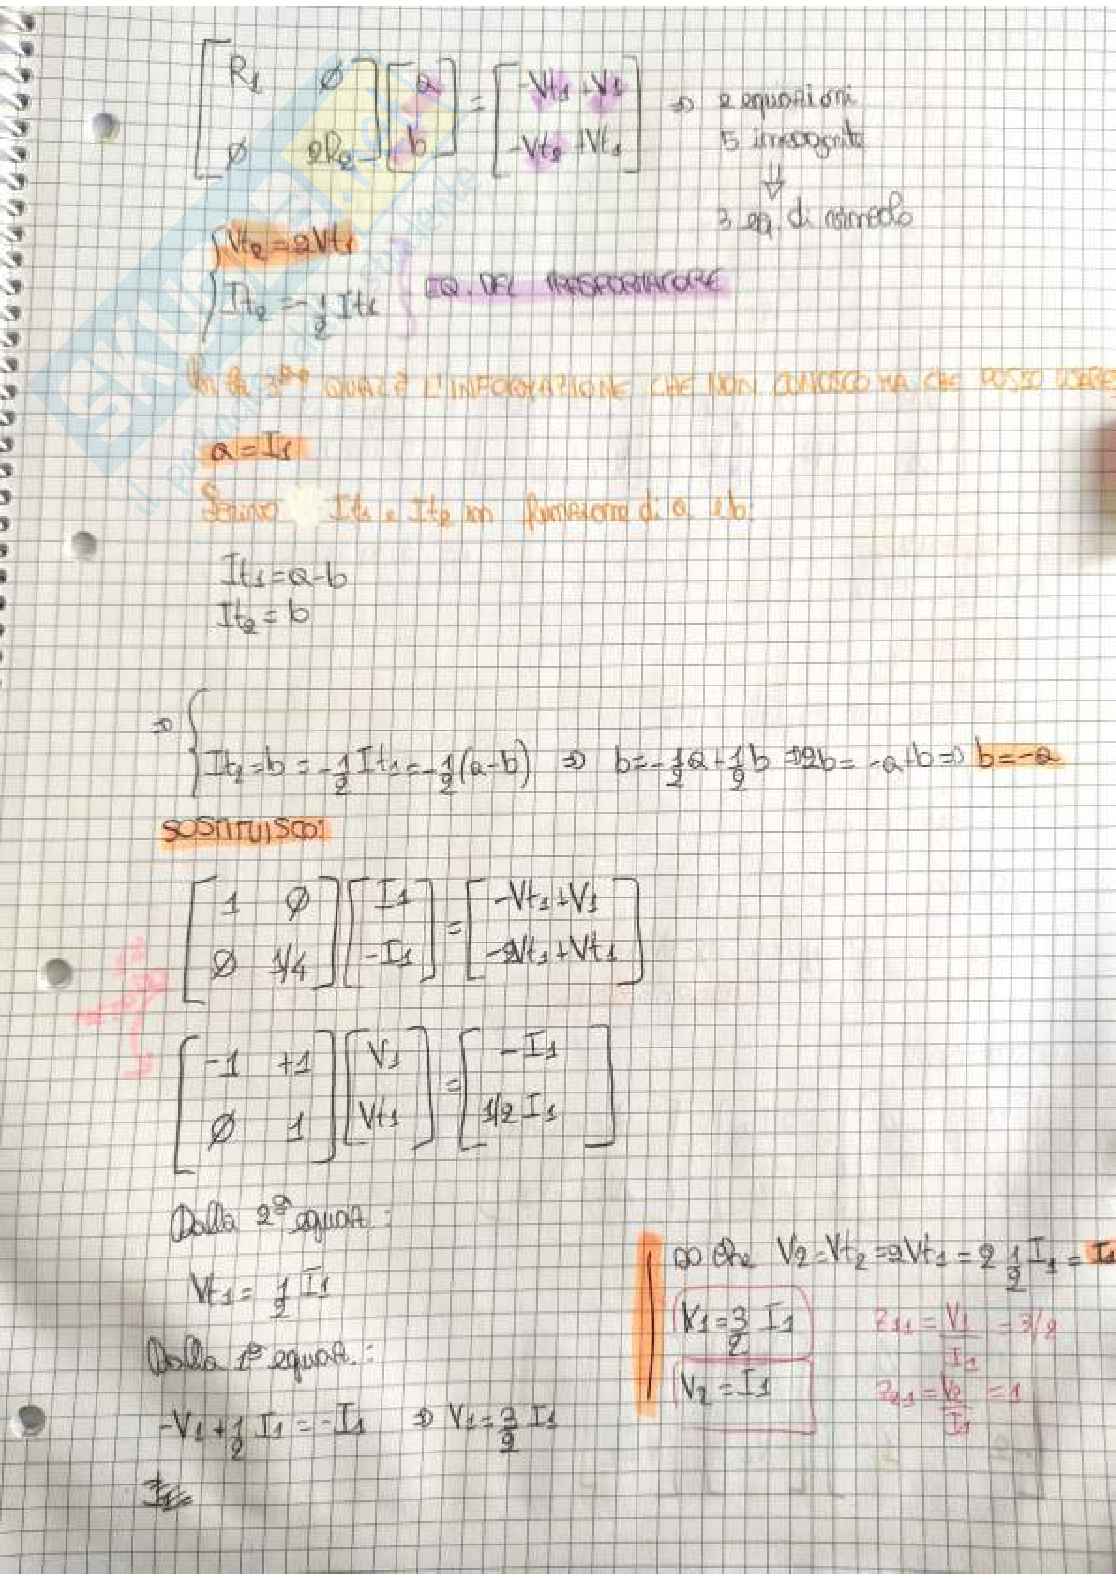 [R1 ∅; ∅ 2R2] [a; b] = [-Vt1 + V1; -Vt2 + Vt1] ⇒ 2 equazioni
5 incognite
⇓
3 eq. di
Vt2 = 2Vt1
It2 = -1/2 It1
EQ. DEL TRASFORMATORE
3 QUAL È L'INFORMAZIONE CHE NON CONOSCO MA CHE POSSO
a = I1
Scrivo It1 e It2 in funzione di a e b:
It1 = a-b
It2 = b
⇒ {
It2 = b = -1/2 It1 = -1/2 (a-b) ⇒ b = -1/2 a + 1/2 b ⇒ 2b = -a+b ⇒ b = -a
SOSTITUISCO:
[1 ∅; ∅ 1/4] [I1; -I1] = [-Vt1 + V1; -2Vt1 + Vt1]
[-1 +1; ∅ 1] [V1; Vt1] = [-I1; 1/2 I1]
Dalla 2ª equaz.:
Vt1 = 1/2 I1
Dalla 1ª equaz.:
-V1 + 1/2 I1 = -I1 ⇒ V1 = 3/2 I1
che V2 = Vt2 = 2Vt1 = 2 1/2 I1 = I1
V1 = 3/2 I1
z11 = V1/I1 = 3/2
V2 = I1
= V2/I1 = 1
SKUOLA.net